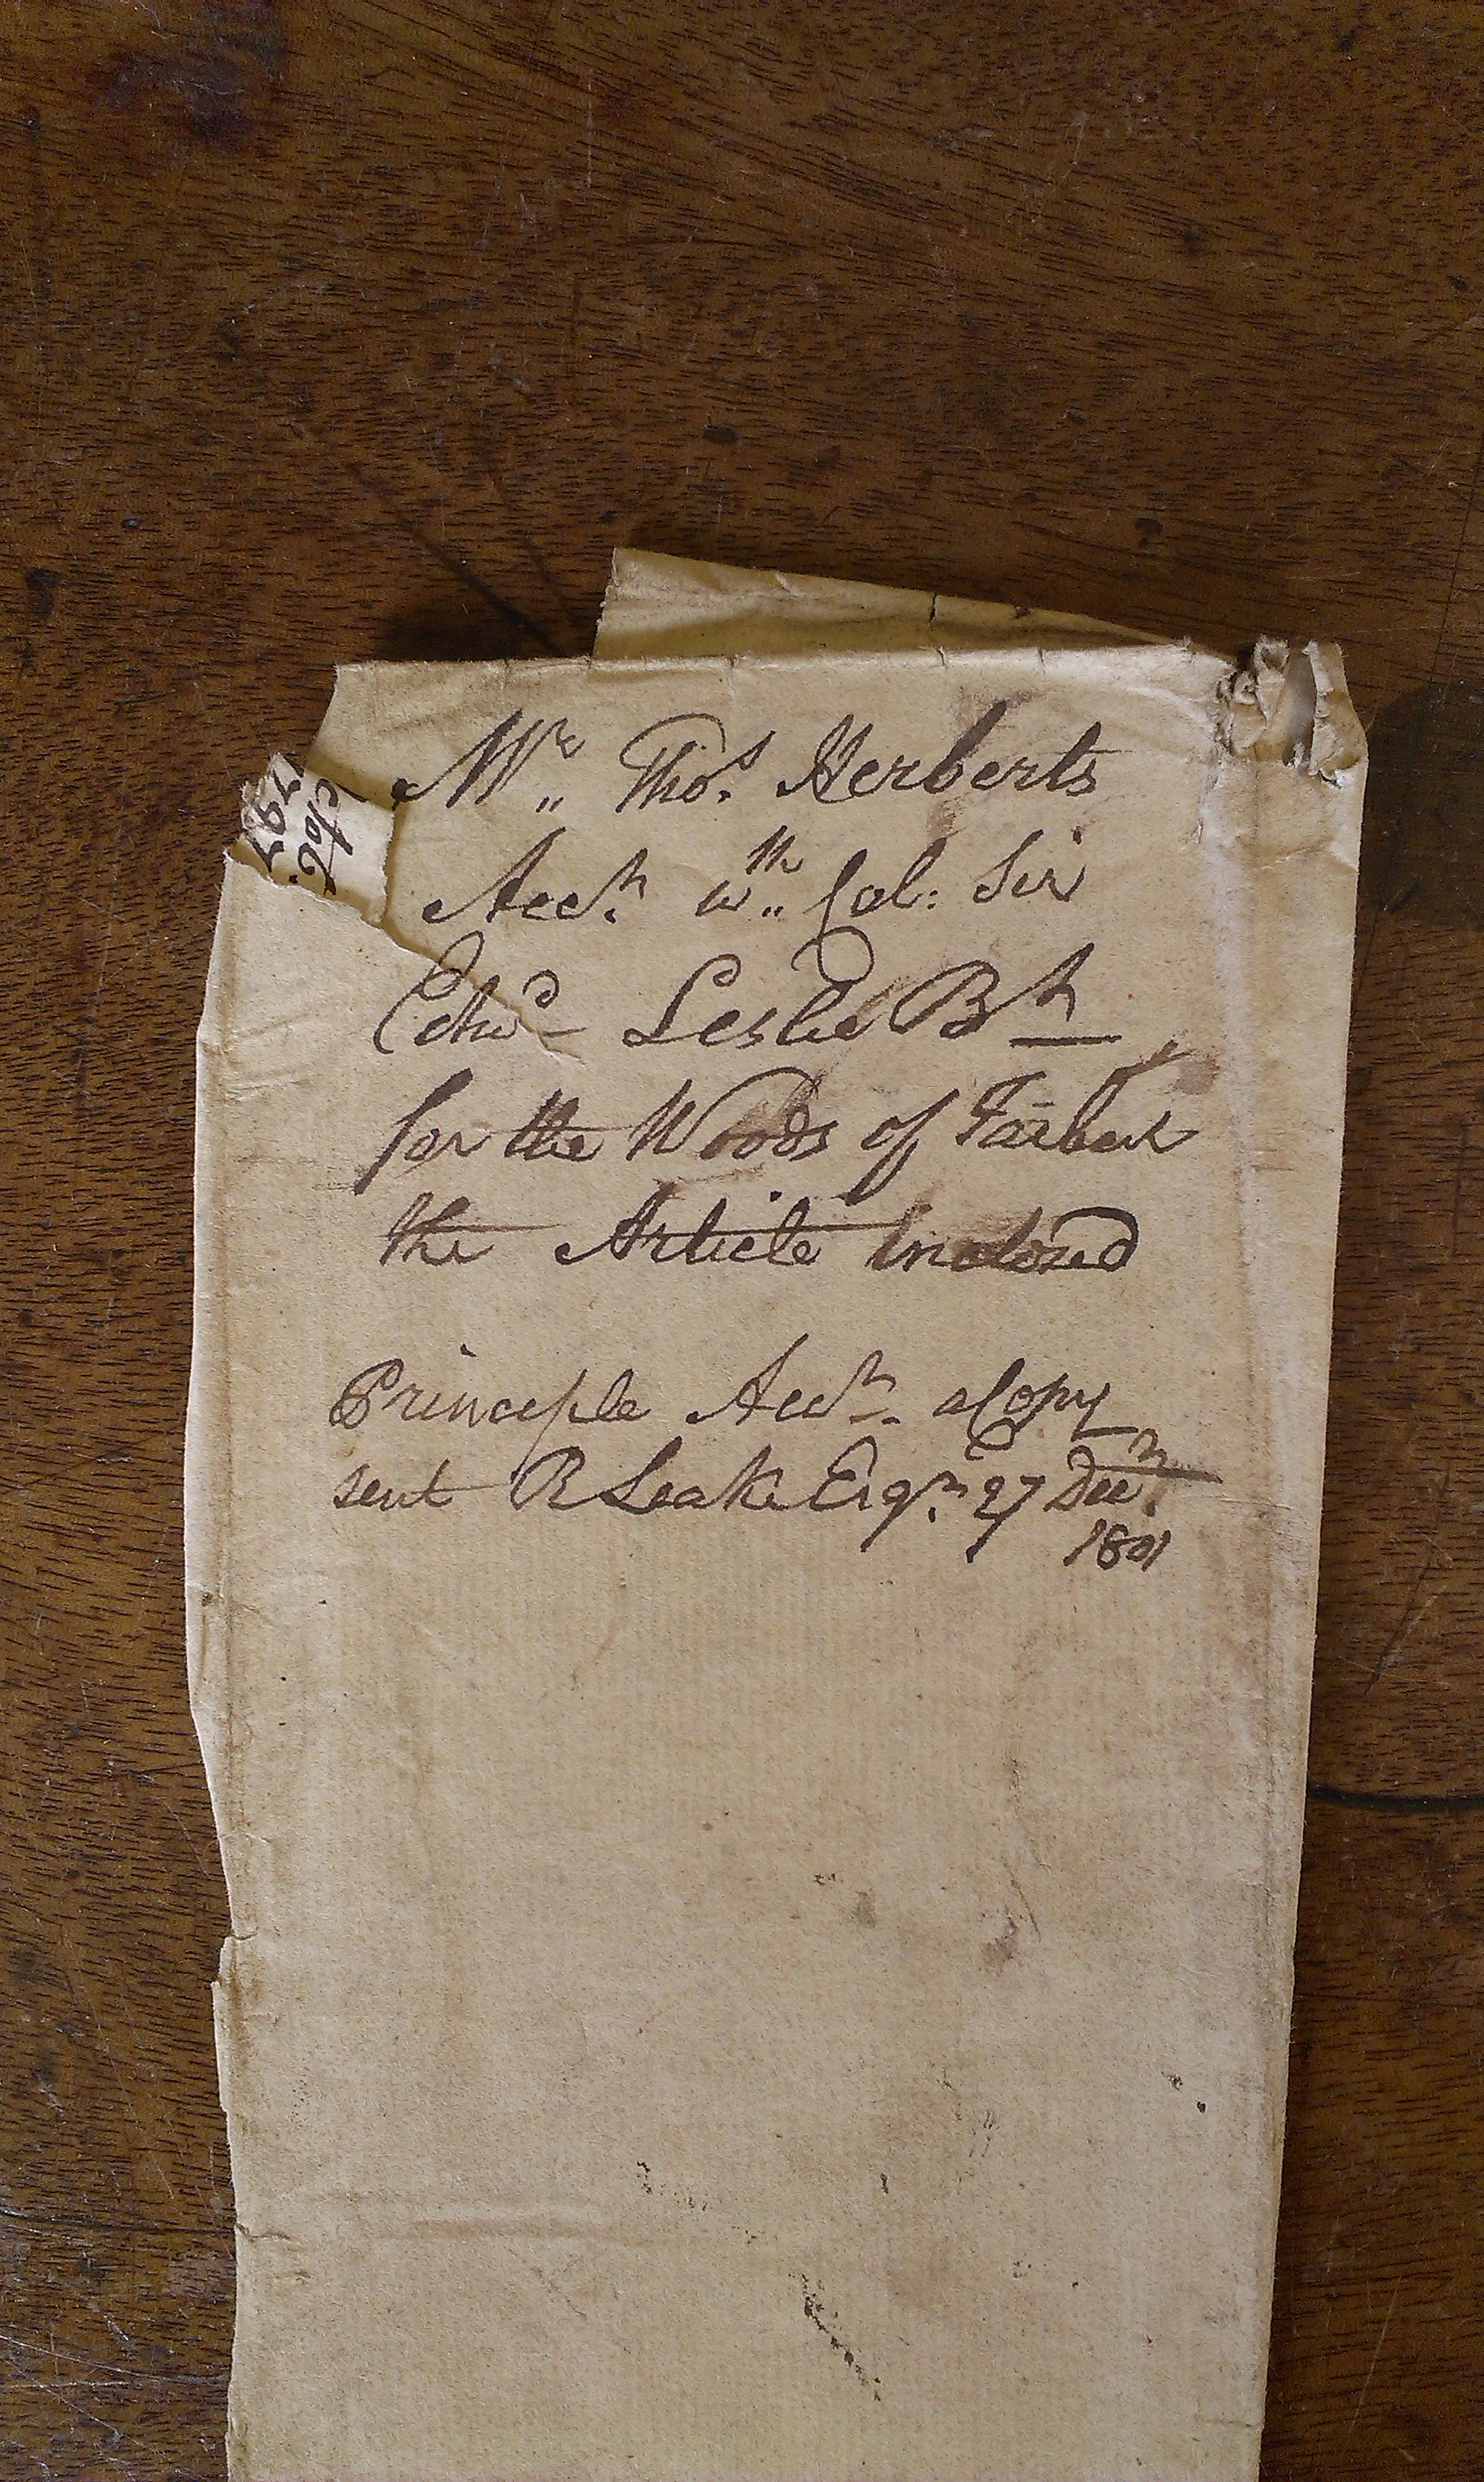 Mr Thos. Herberts
Acct. wth Col: Sir
Edwd Leslie Bt
for the Woods of Tarbert
the Article Inclosed
Principle Acct. a Copy
sent R Leake Esqr. 27 Decr.
1801
1797